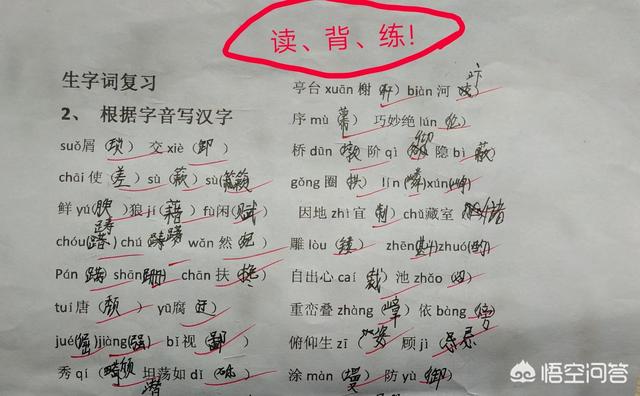 读、背、练!
生字词复习
2、根据字音写汉字
suǒ屑(琐) 交xiè(卸)
chāi使(差) sù(簌)sù(簌)
鲜yú(腴)狼jí(藉) fù闲(赋)
chóu(踌)chú(躇) wǎn然(宛)
Pán(蹒)shān(跚) chān扶(搀)
tuí唐(颓) yū腐(迂)
jué(倔)jiàng(强) bǐ视(鄙)
秀qí(颀) 坦荡如dǐ(砥)
亭台xuān榭(轩)biàn河(汴)
序mù(幕) 巧妙绝lún(伦)
桥dūn(墩)阶qì(砌)隐bì(蔽)
gǒng圈(拱) lín(嶙)xún(峋)
因地zhì宜(制)chǔ藏室(储)
雕lòu(镂) zhēn(斟)zhuó(酌)
自出心cái(裁)池zhǎo(沼)
重峦叠zhàng(嶂)依bàng(傍)
俯仰生zī(姿) 顾jì(忌)
涂màn(墁) 防yù(御)
悟空问答